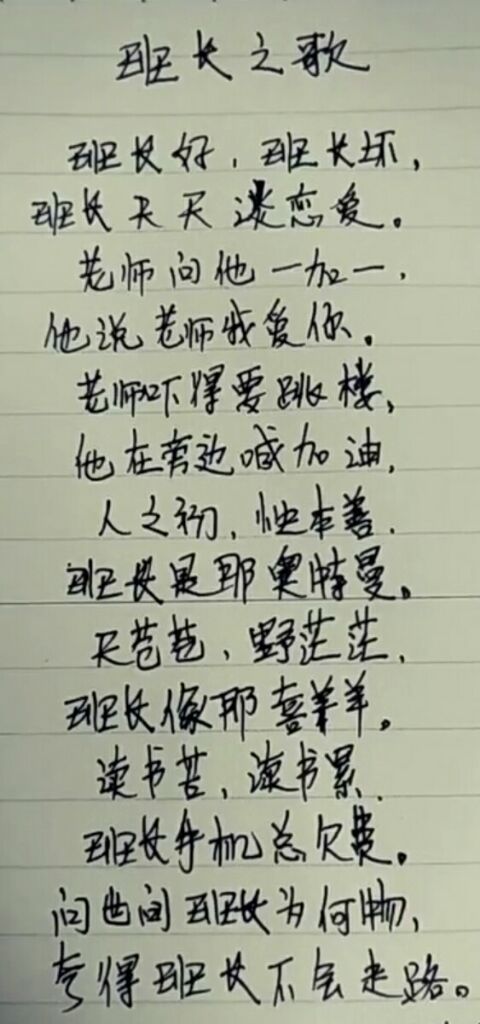 班长之歌
班长好，班长坏，
班长天天谈恋爱。
老师问他一加一，
他说老师我爱你。
老师吓得要跳楼，
他在旁边喊加油，
人之初，性本善．
班长是那奥特曼。
天苍苍，野茫茫，
班长像那喜羊羊。
读书苦，读书累，
班长手机总欠费。
问世间班长为何物，
夸得班长不会走路。